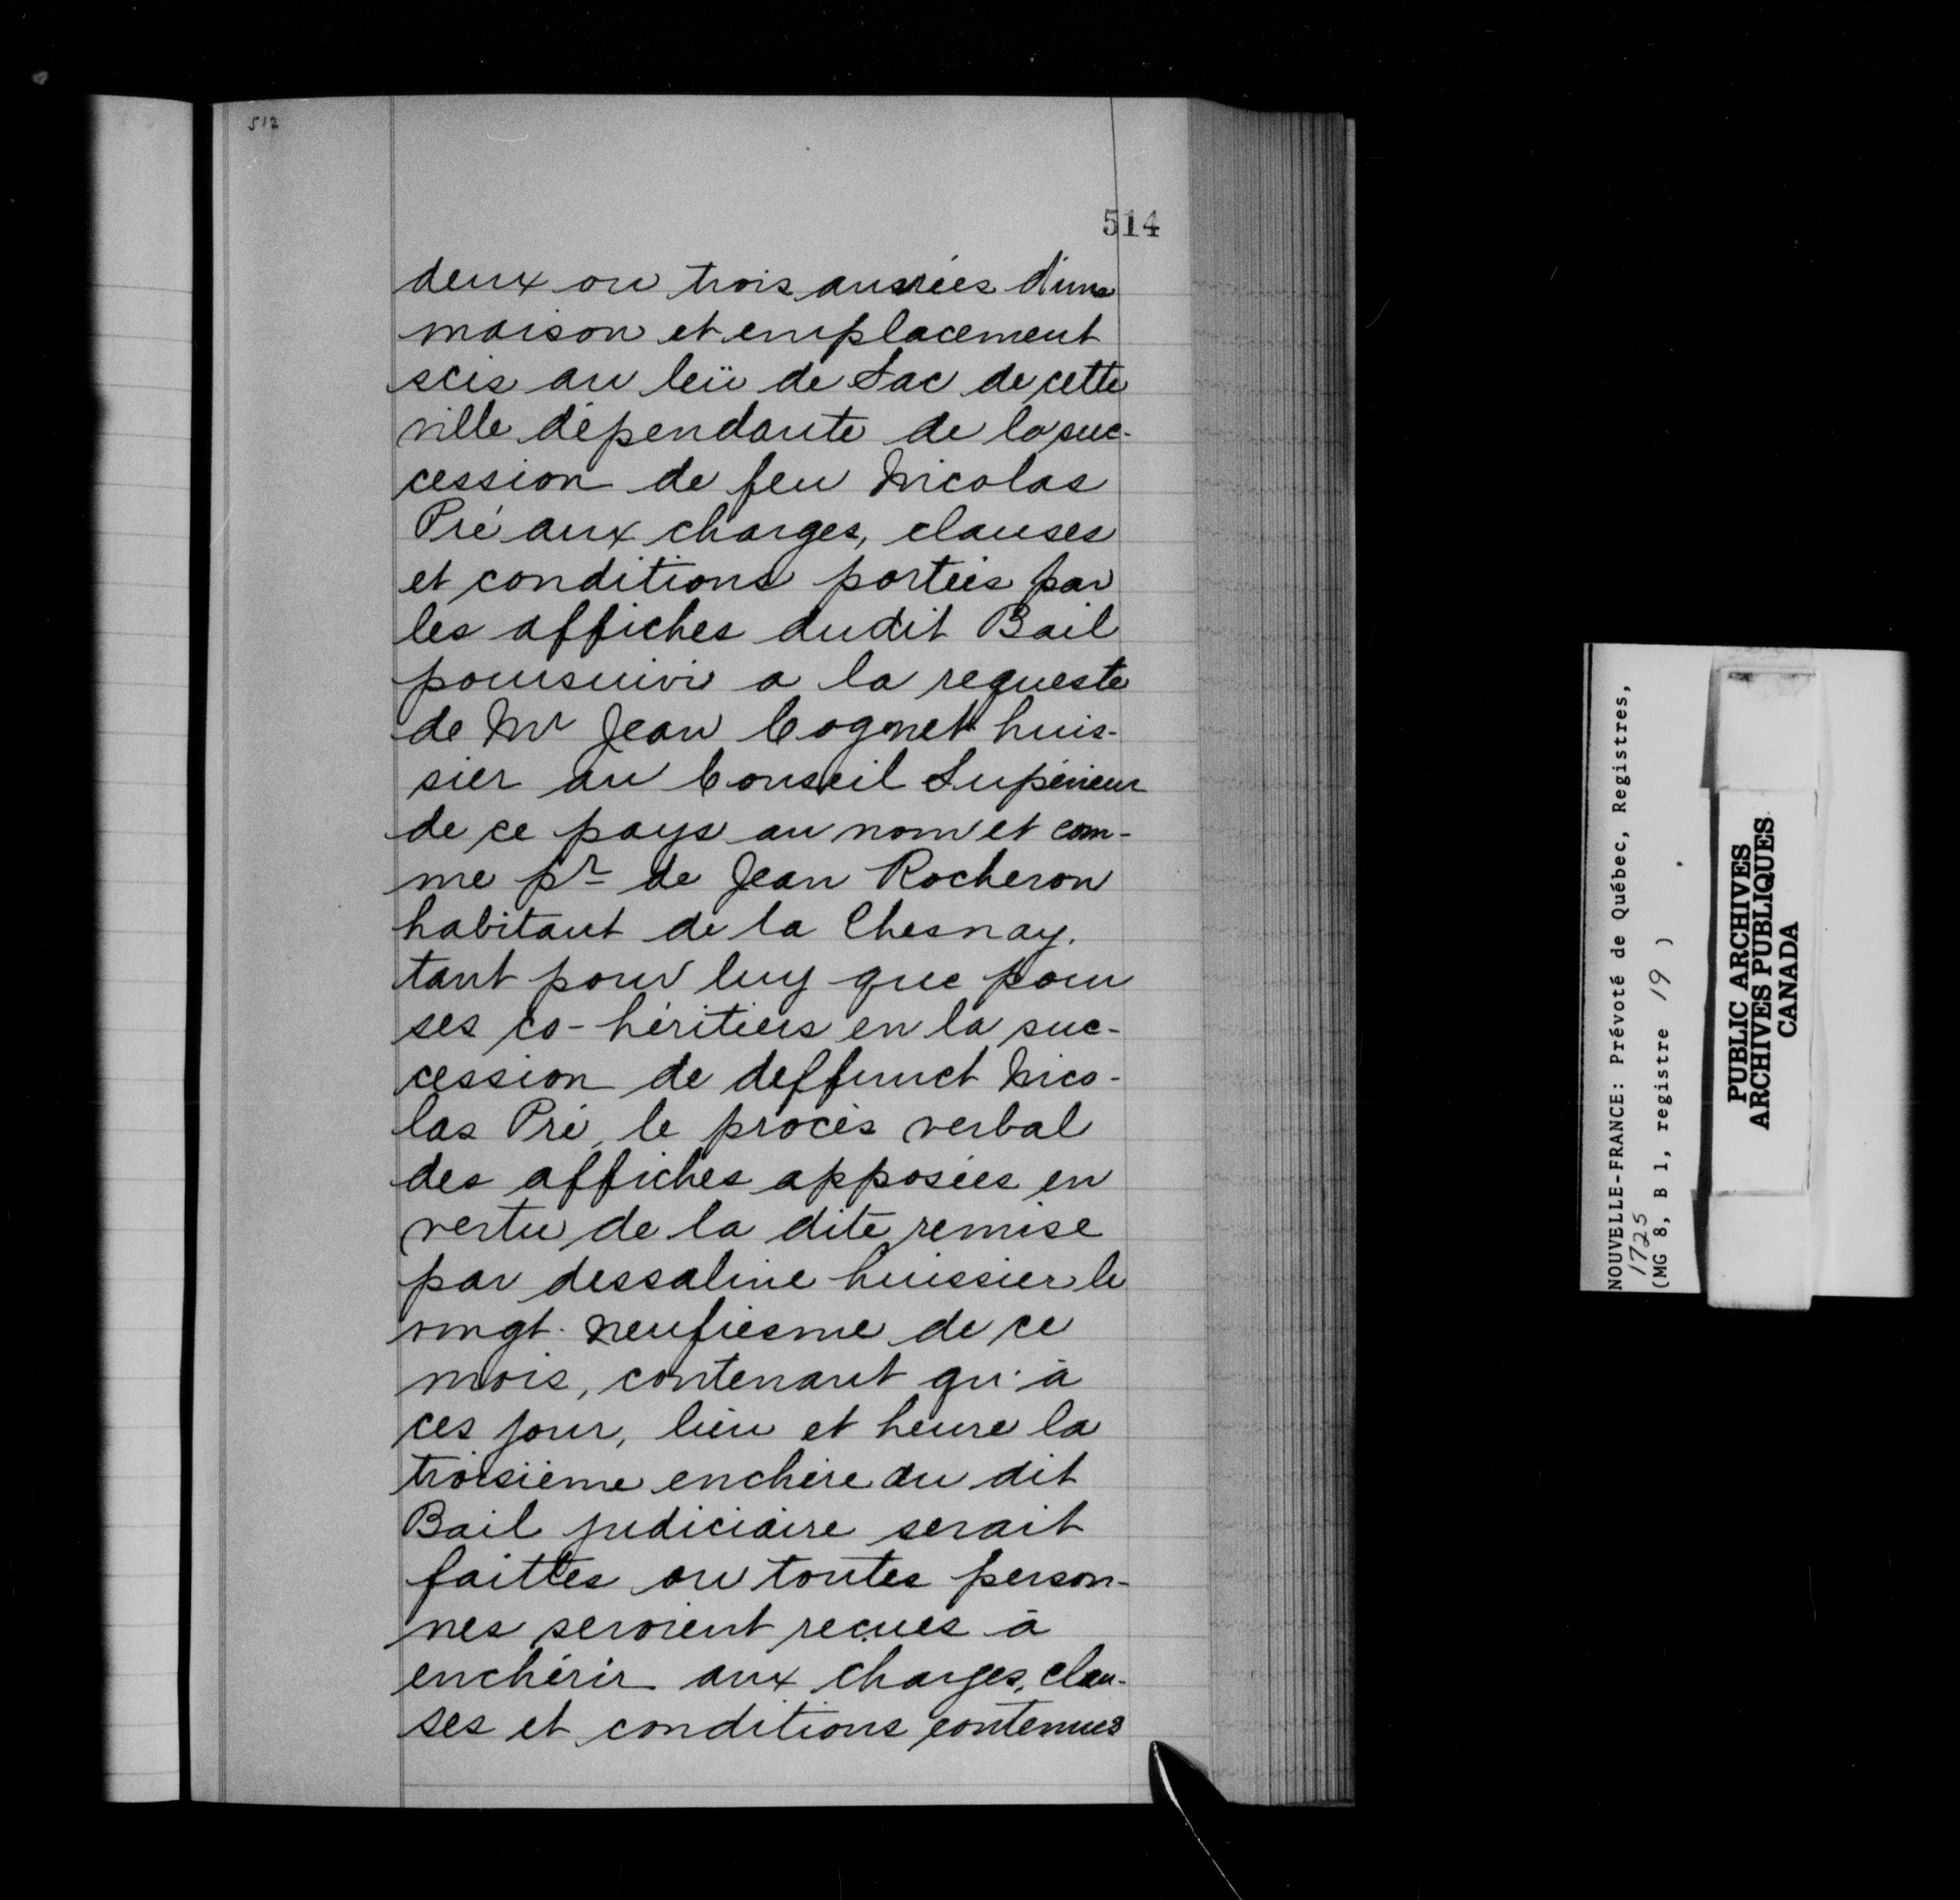 512
514
deux ou trois années d'une
maison et emplacement
scis au leü de Sac de cette
ville dépendante de la suc-
cession de feu Nicolas
Pré aux charges, clauses
et conditions portées par
les affiches dudit Bail
poursuivi a la requeste
de Mr Jean Cognet huis-
sier au Conseil Supérieur
de ce pays au nom et com-
me pr de Jean Rocheron
habitant de la Chesnay.
tant pour luy que pour
ses co-héritiers en la suc-
cession de deffunct Nico-
las Pré, le procès verbal
des affiches apposées en
vertu de la dite remise
par dessaline huissier le
vingt-neufiesme de ce
mois, contenant qu'à
ces jour, lieu et heure la
troisième enchère du dit
Bail judiciaire serait
faittes ou toutes person-
nes seroient reçues à
enchérir aux charges, clau-
ses et conditions contenues
NOUVELLE-FRANCE: Prévoté de Québec, Registres,
1725
(MG 8, B 1, registre 19 )
PUBLIC ARCHIVES
ARCHIVES PUBLIQUES
CANADA